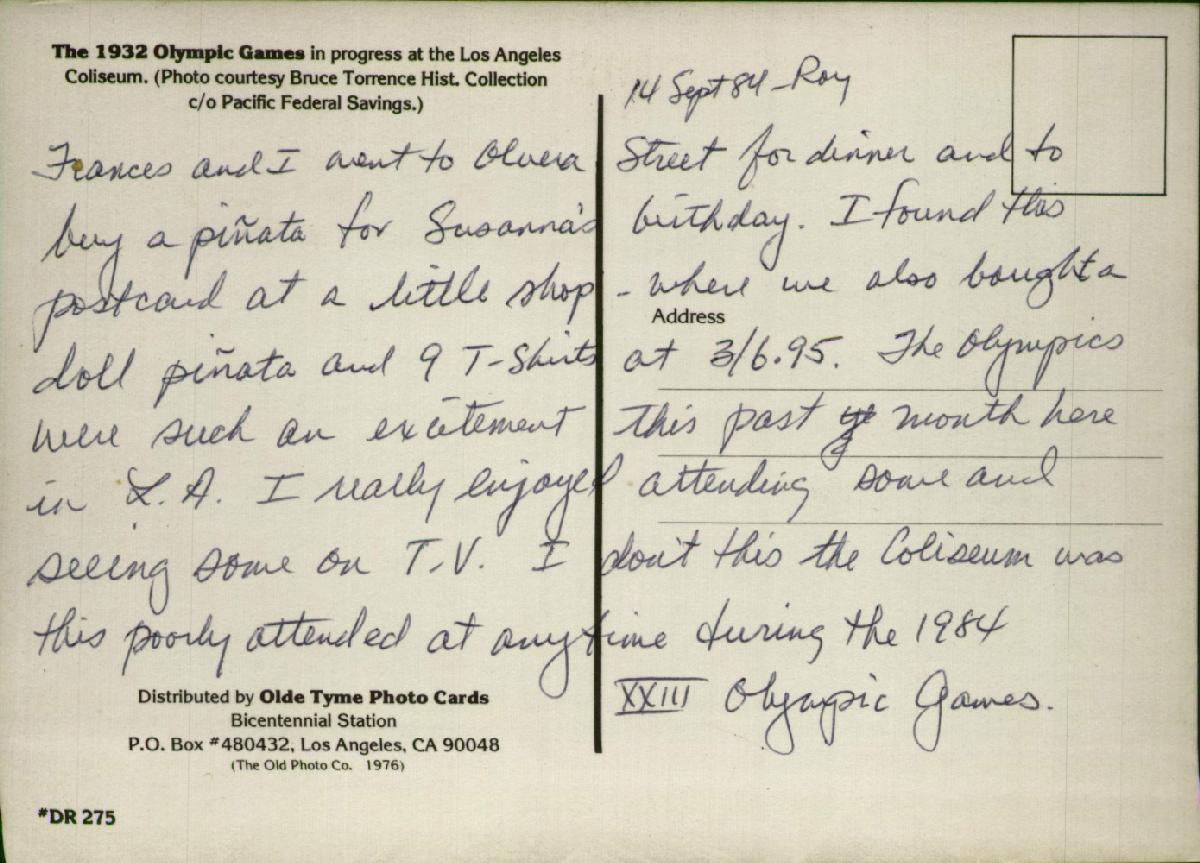 The 1932 Olympic Games in progress at the Los Angeles
Coliseum. (Photo courtesy Bruce Torrence Hist. Collection
c/o Pacific Federal Savings.)
14 Sept 84 - Roy
Frances and I went to Olvera Street for dinner and to
buy a piñata for Susanna's birthday. I found this
postcard at a little shop - where we also bought a
Address
doll piñata and 9 T-Shirts at 3/6.95. The Olympics
were such an excitement this past month here
in L.A. I really enjoyed attending some and
seeing some on T.V. I don't this the Coliseum was
this poorly attended at anytime during the 1984
XXIII Olympic Games.
Distributed by Olde Tyme Photo Cards
Bicentennial Station
P.O. Box #480432, Los Angeles, CA 90048
(The Old Photo Co. 1976)
#DR 275